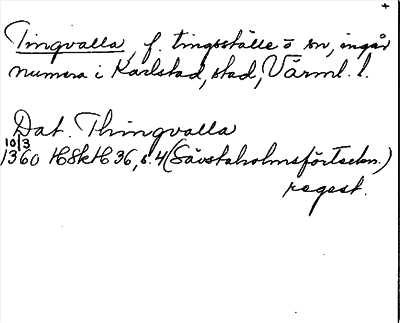 +
Tingvalla, f. tingsställe o sn, ingår
numera i Karlstad, stad, Värml. l.
Dat. Thingvalla
10/3
1360 HSkH 36, s. 4 (Säfstaholmsförteckn.)
regest.